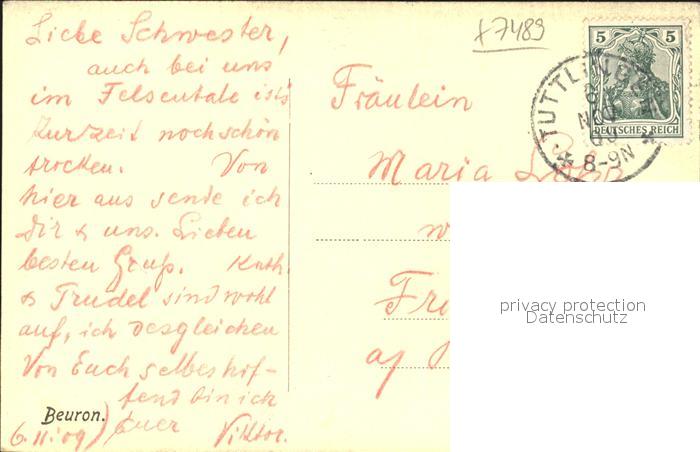 Liebe Schwester,
auch bei uns
im Felsentale ist's
zur Zeit noch schön
trocken. Von
hier aus sende ich
Dir & uns. Lieben
besten Gruß. Kath.
& Trudel sind wohl
auf, ich desgleichen
Von Euch selbes hof-
fend bin ich
Euer
Viktor.
6.11.09)
Beuron.
x7489
Fräulein
Maria
Fr
a/
5 5
DEUTSCHES REICH
TUTTLINGEN
6
NOV
09
8-9N
privacy protection
Datenschutz